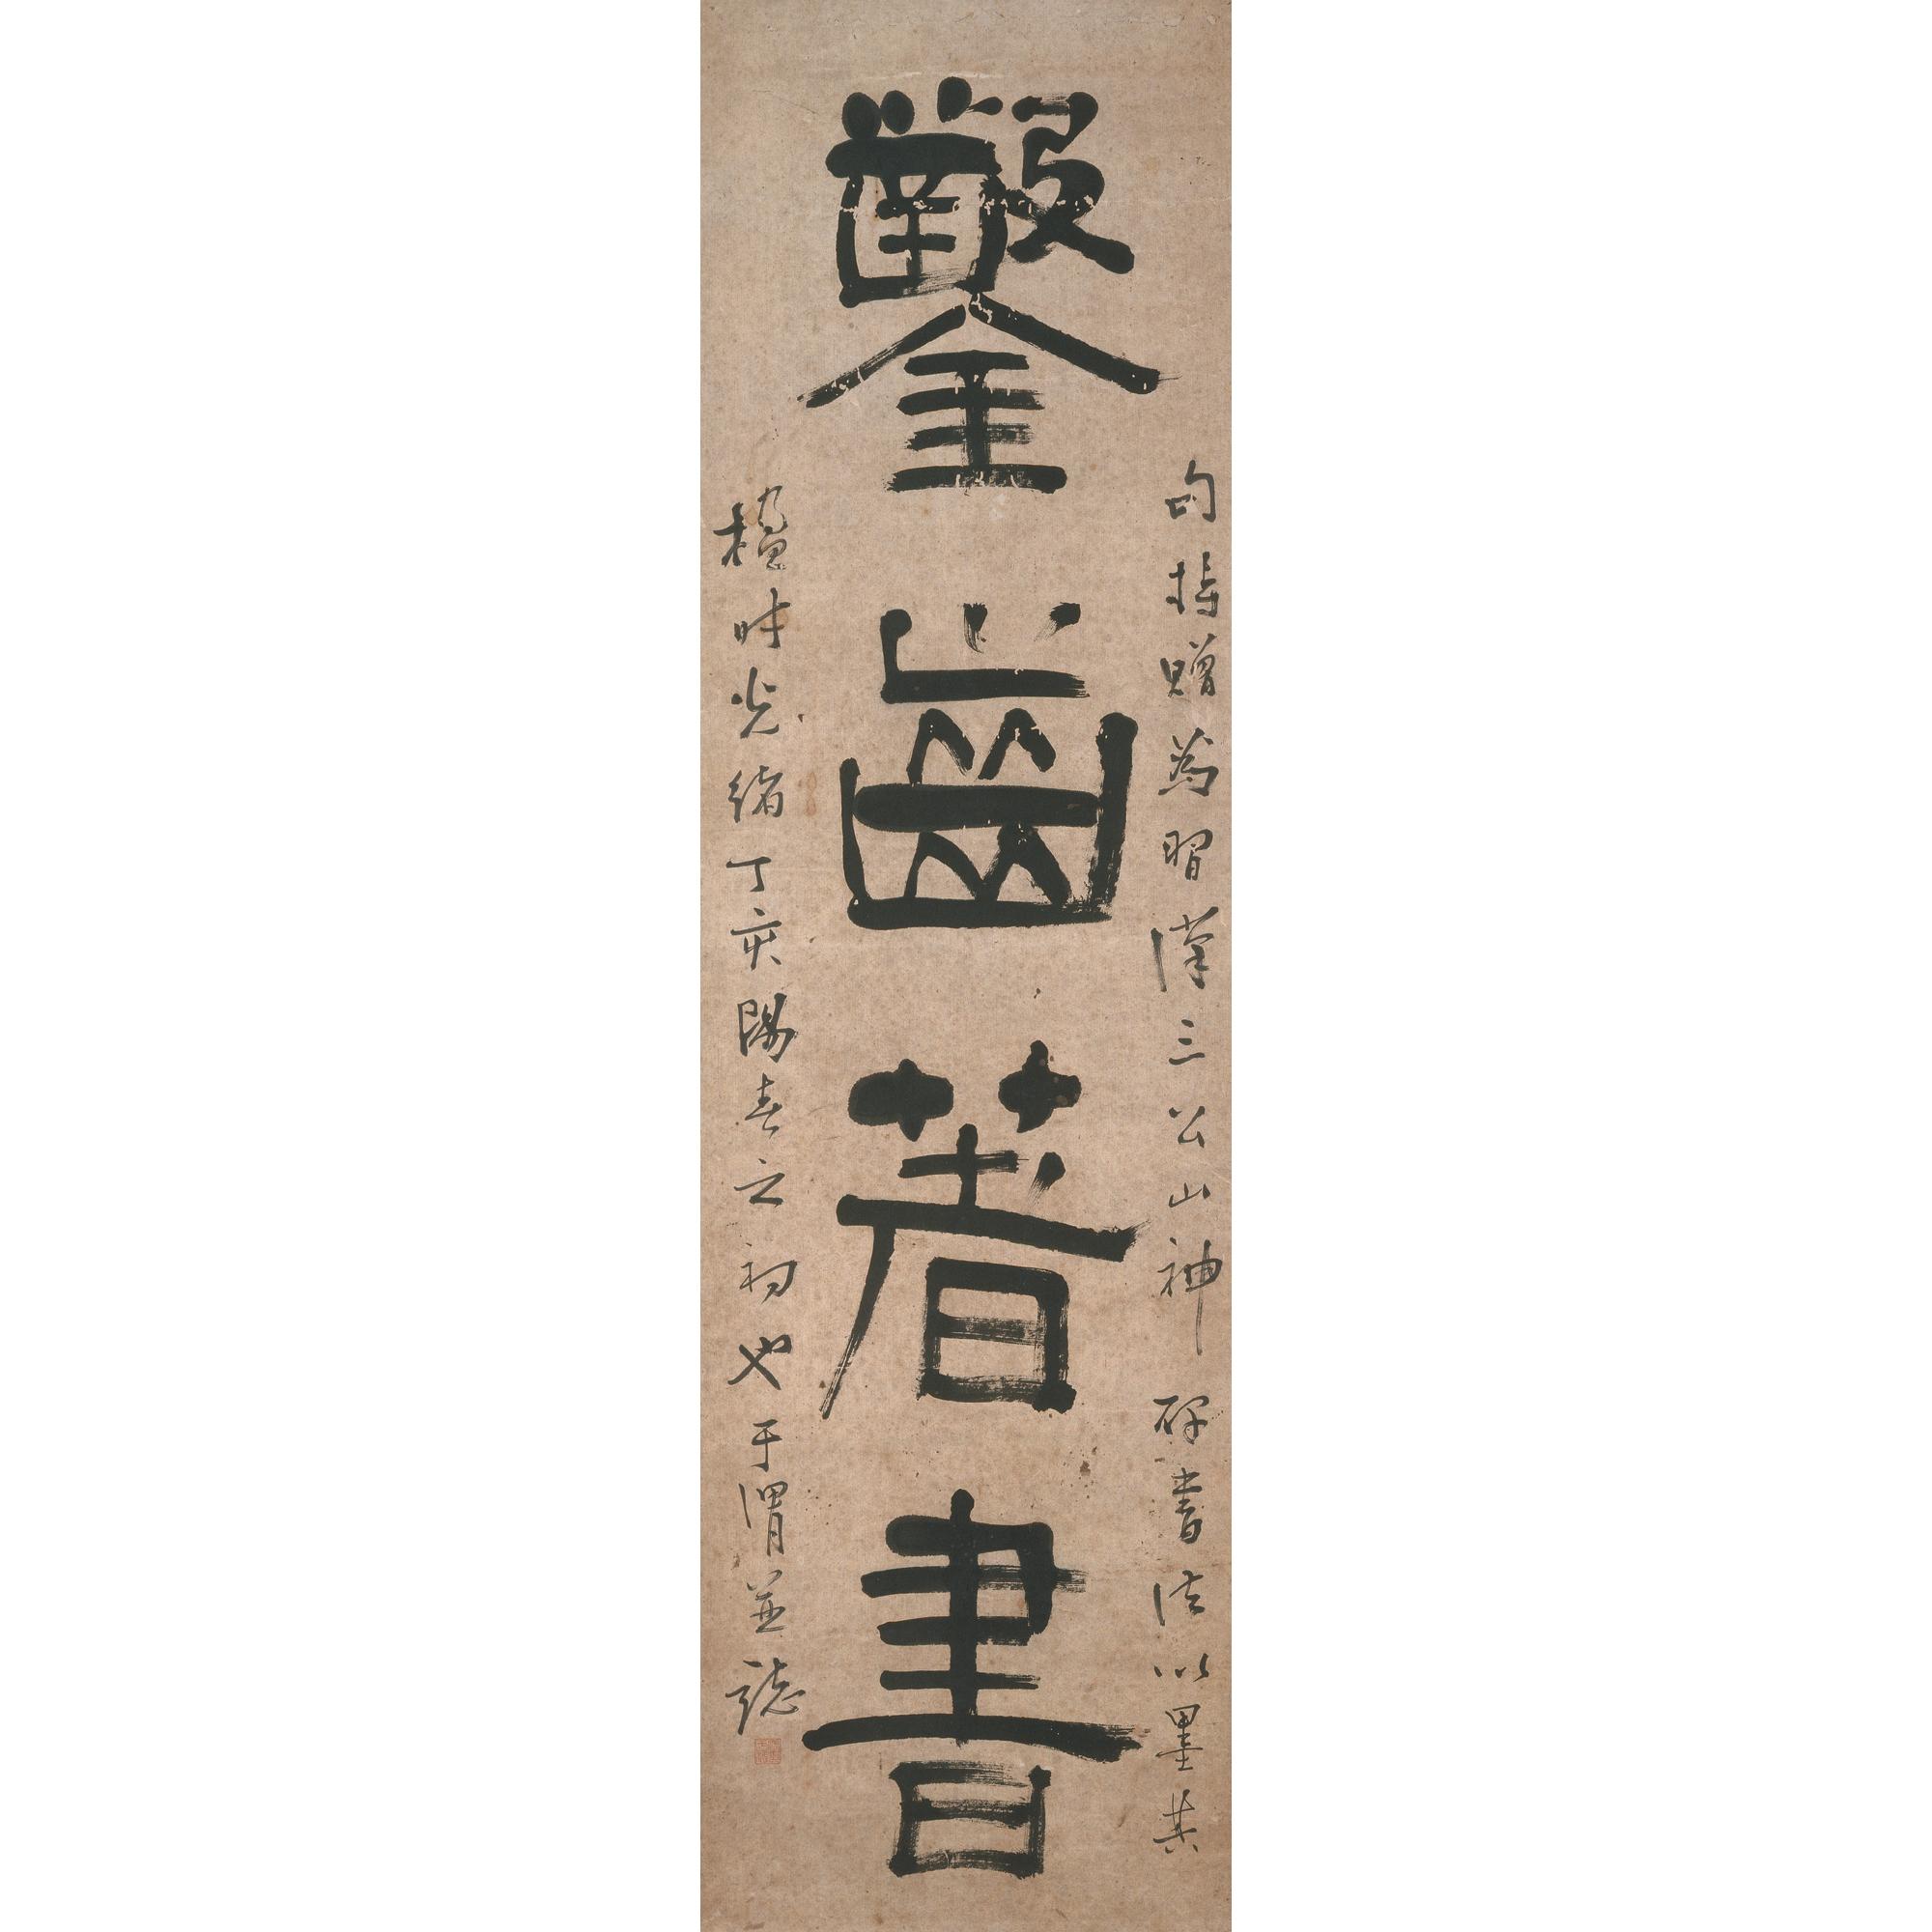 句持贈為習漢三公山神碑書法以墨其
鑿齒著書
楹時光緒丁亥陽春之初也于渭並誌